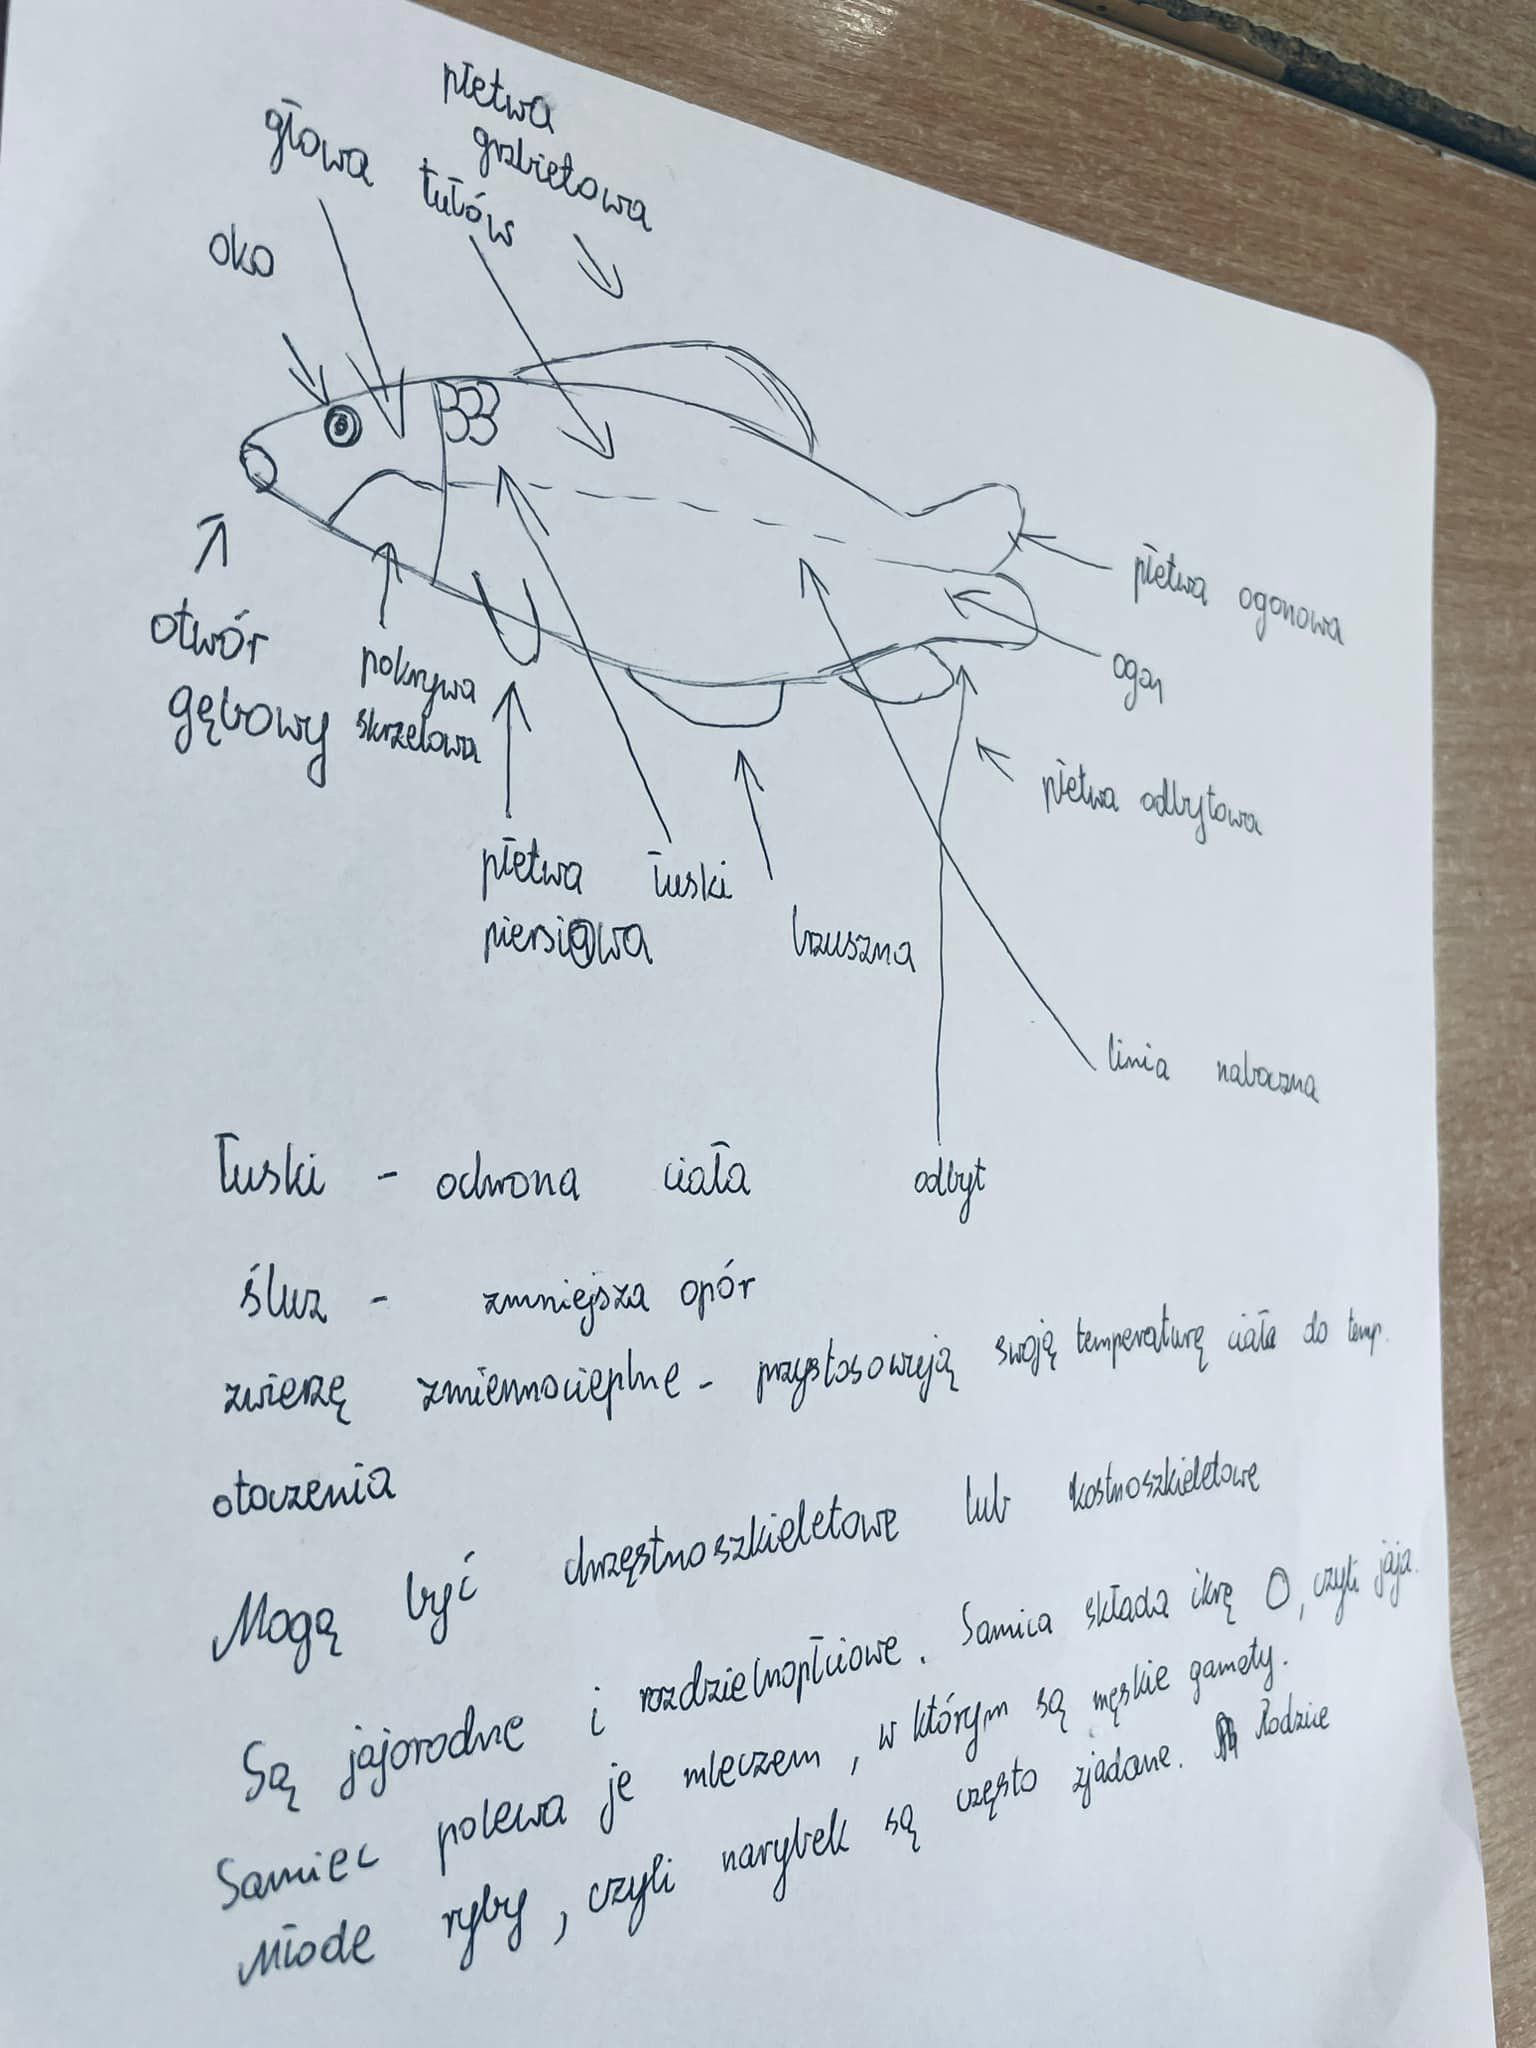 płetwa
grzbietowa
głowa
tułów
oko
otwór
gębowy
pokrywa
skrzelowa
płetwa
piersiowa
łuski
brzuszna
płetwa ogonowa
ogon
płetwa odbytowa
linia naboczna
odbyt
łuski - ochrona ciała
śluz - zmniejsza opór
zwierzę zmiennocieplne - przystosowują swoją temperaturę ciała do temp.
otoczenia
Mogą być chrzęstnoszkieletowe lub kostnoszkieletowe
Są jajorodne i rozdzielnopłciowe. Samica składa ikrę O, czyli jaja.
Samiec polewa je mleczem, w którym są męskie gamety.
Młode ryby, czyli narybek są często zjadane. Rodzice